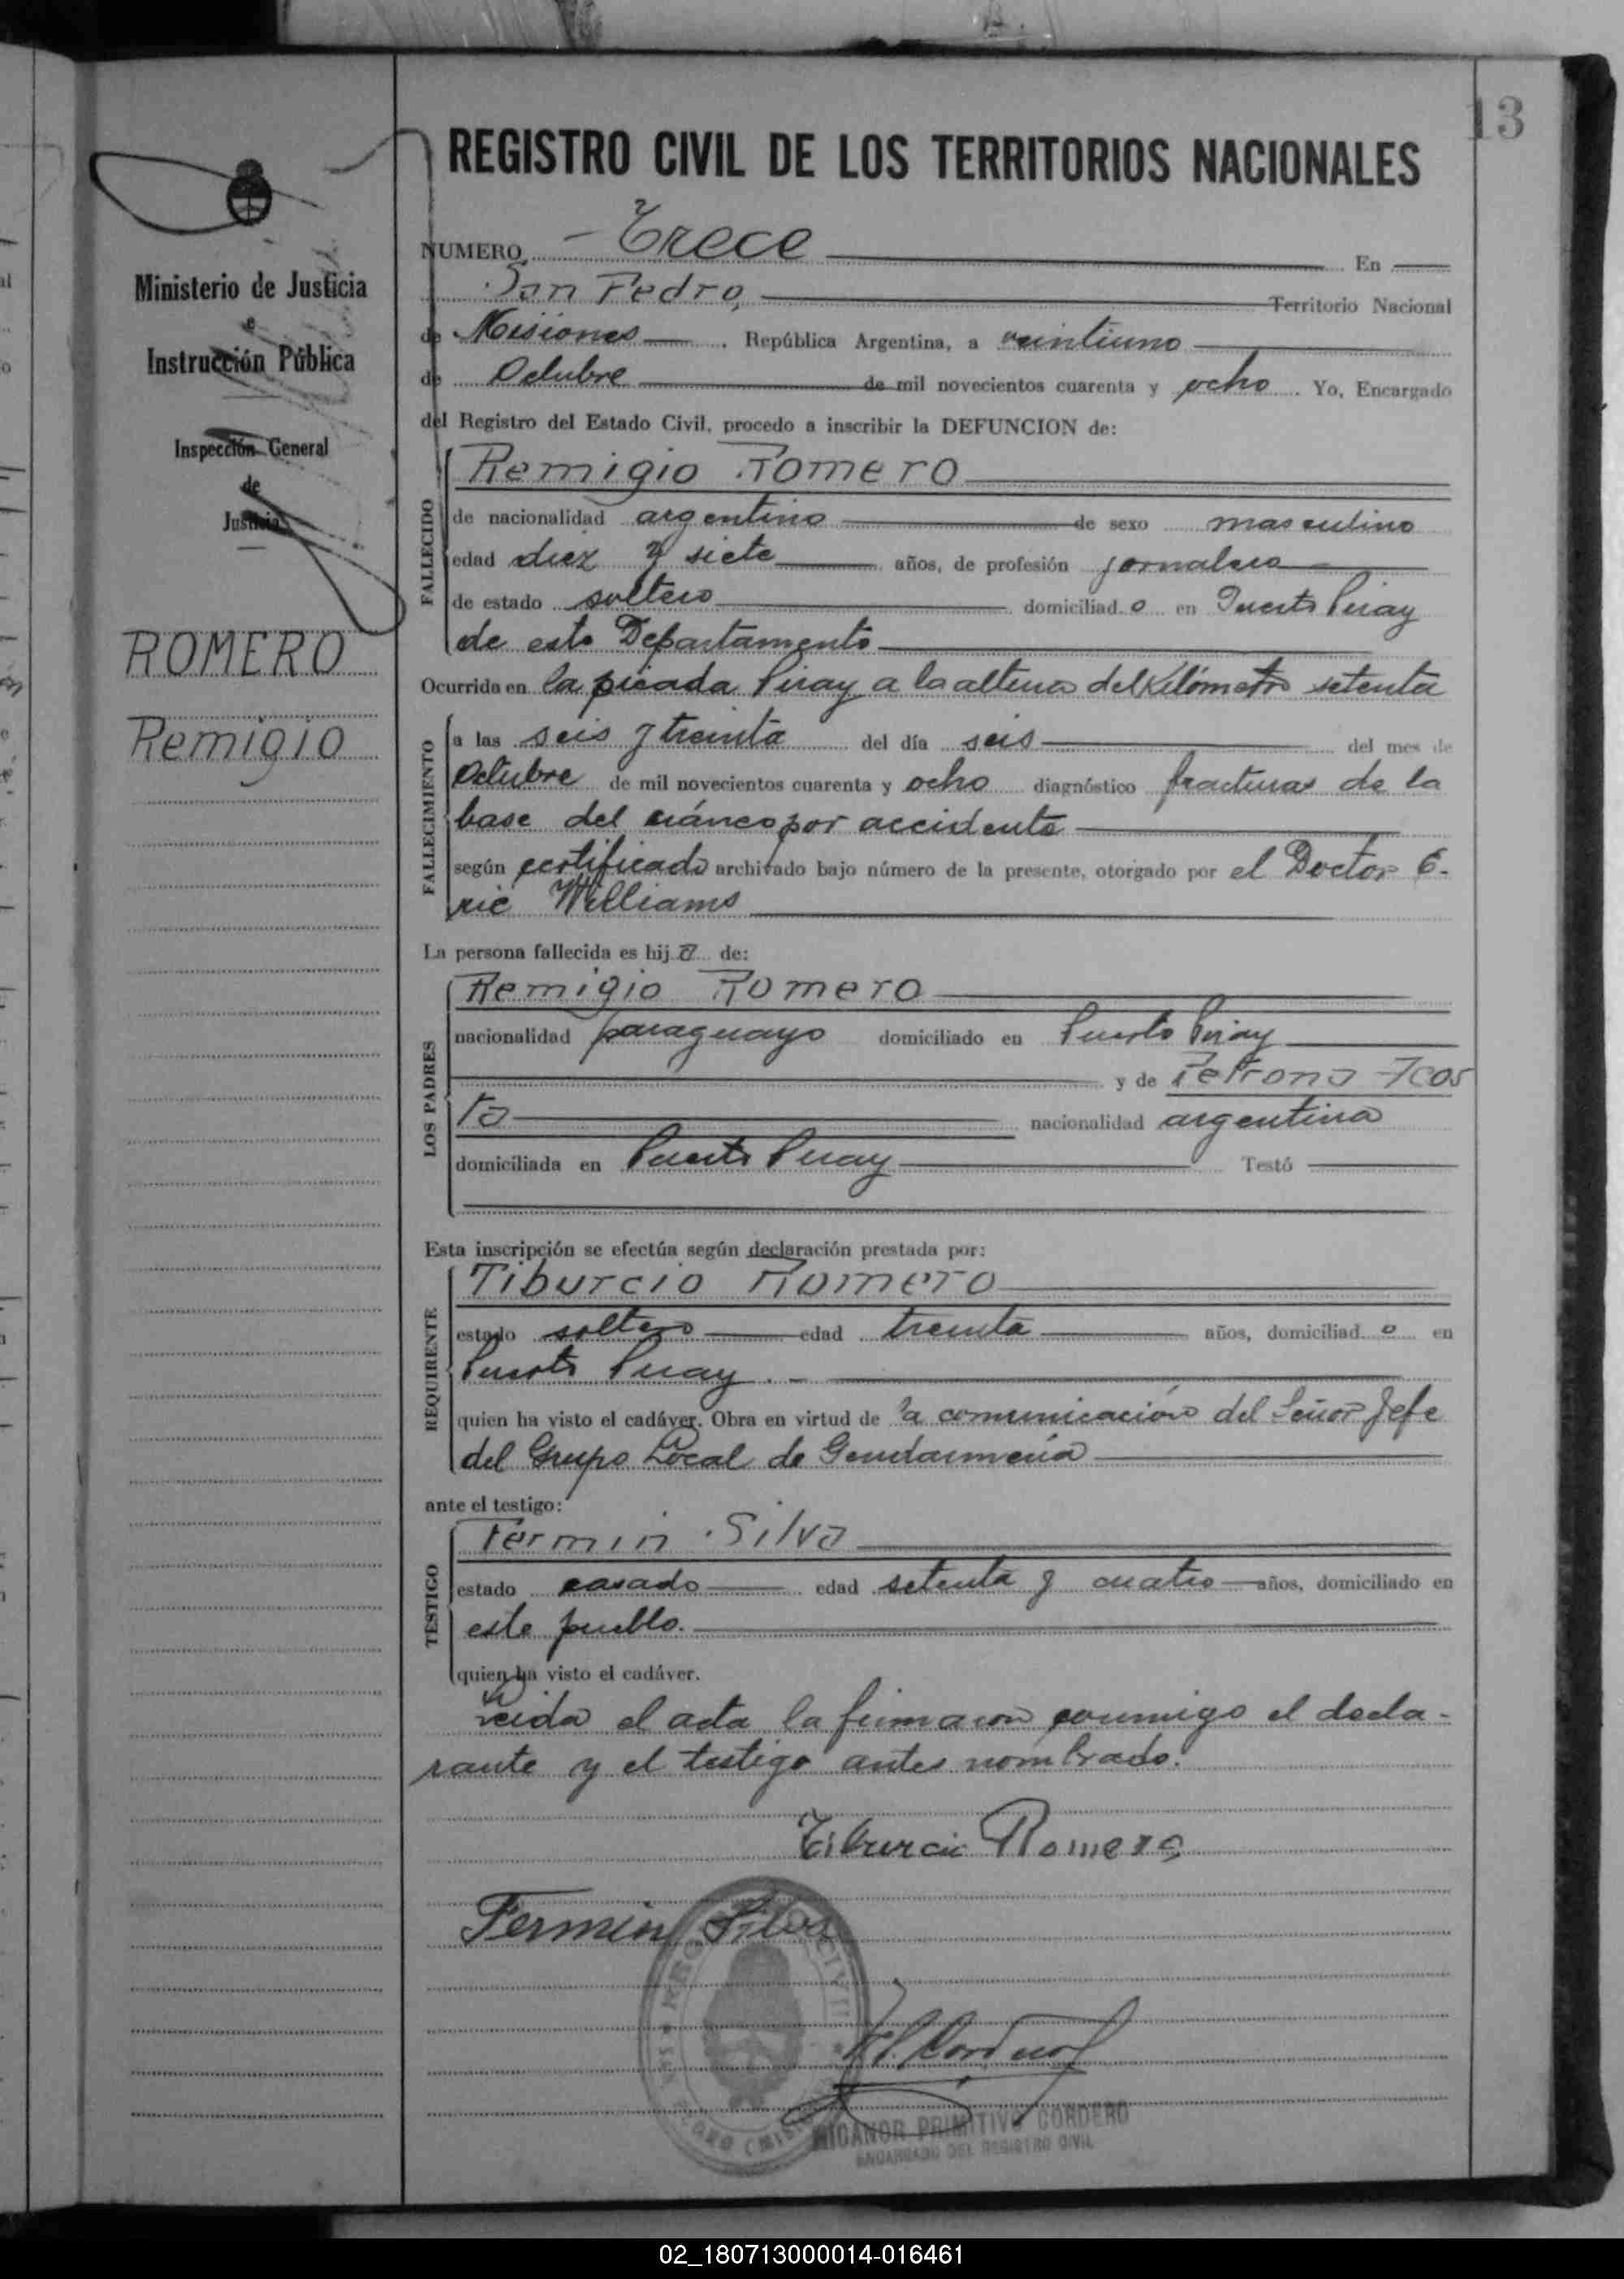 13
REGISTRO CIVIL DE LOS TERRITORIOS NACIONALES
Ministerio de Justicia
e
Instrucción Pública
Inspección General
de
Justicia
ROMERO
Remigio
NUMERO - Trece En
San Pedro, Territorio Nacional
de Misiones, República Argentina, a veintiuno
de Octubre de mil novecientos cuarenta y ocho. Yo, Encargado
del Registro del Estado Civil, procedo a inscribir la DEFUNCION de:
FALLECIDO
Remigio Romero
de nacionalidad argentino de sexo masculino
edad diez y siete años, de profesión jornalero
de estado soltero domiciliad o en Puerto Piray
de este Departamento
Ocurrida en la picada Piray a la altura del Kilómetro setenta
FALLECIMIENTO
a las seis y treinta del día seis del mes de
Octubre de mil novecientos cuarenta y ocho diagnóstico fracturas de la
base del cráneo por accidente
según certificado archivado bajo número de la presente, otorgado por el Doctor E-
ric Williams
La persona fallecida es hij o de:
LOS PADRES
Remigio Romero
nacionalidad paraguayo domiciliado en Puerto Piray
y de Petrona Acos
ta nacionalidad argentina
domiciliada en Puerto Piray Testó
Esta inscripción se efectúa según declaración prestada por:
REQUIRENTE
Tiburcio Romero
estado soltero edad treinta años, domiciliad o en
Puerto Piray. -
quien ha visto el cadáver. Obra en virtud de la comunicación del Señor Jefe
del Grupo Local de Gendarmería
ante el testigo:
TESTIGO
Fermin Silva
estado casado edad setenta y cuatro años, domiciliado en
este pueblo.
quien ha visto el cadáver.
Leida el acta la firmaron conmigo el decla-
rante y el testigo antes nombrado.
Tiburcio Romero
Fermin Silva
NICANOR PRIMITIVO CORDERO
ENCARGADO DEL REGISTRO CIVIL
02_180713000014-016461